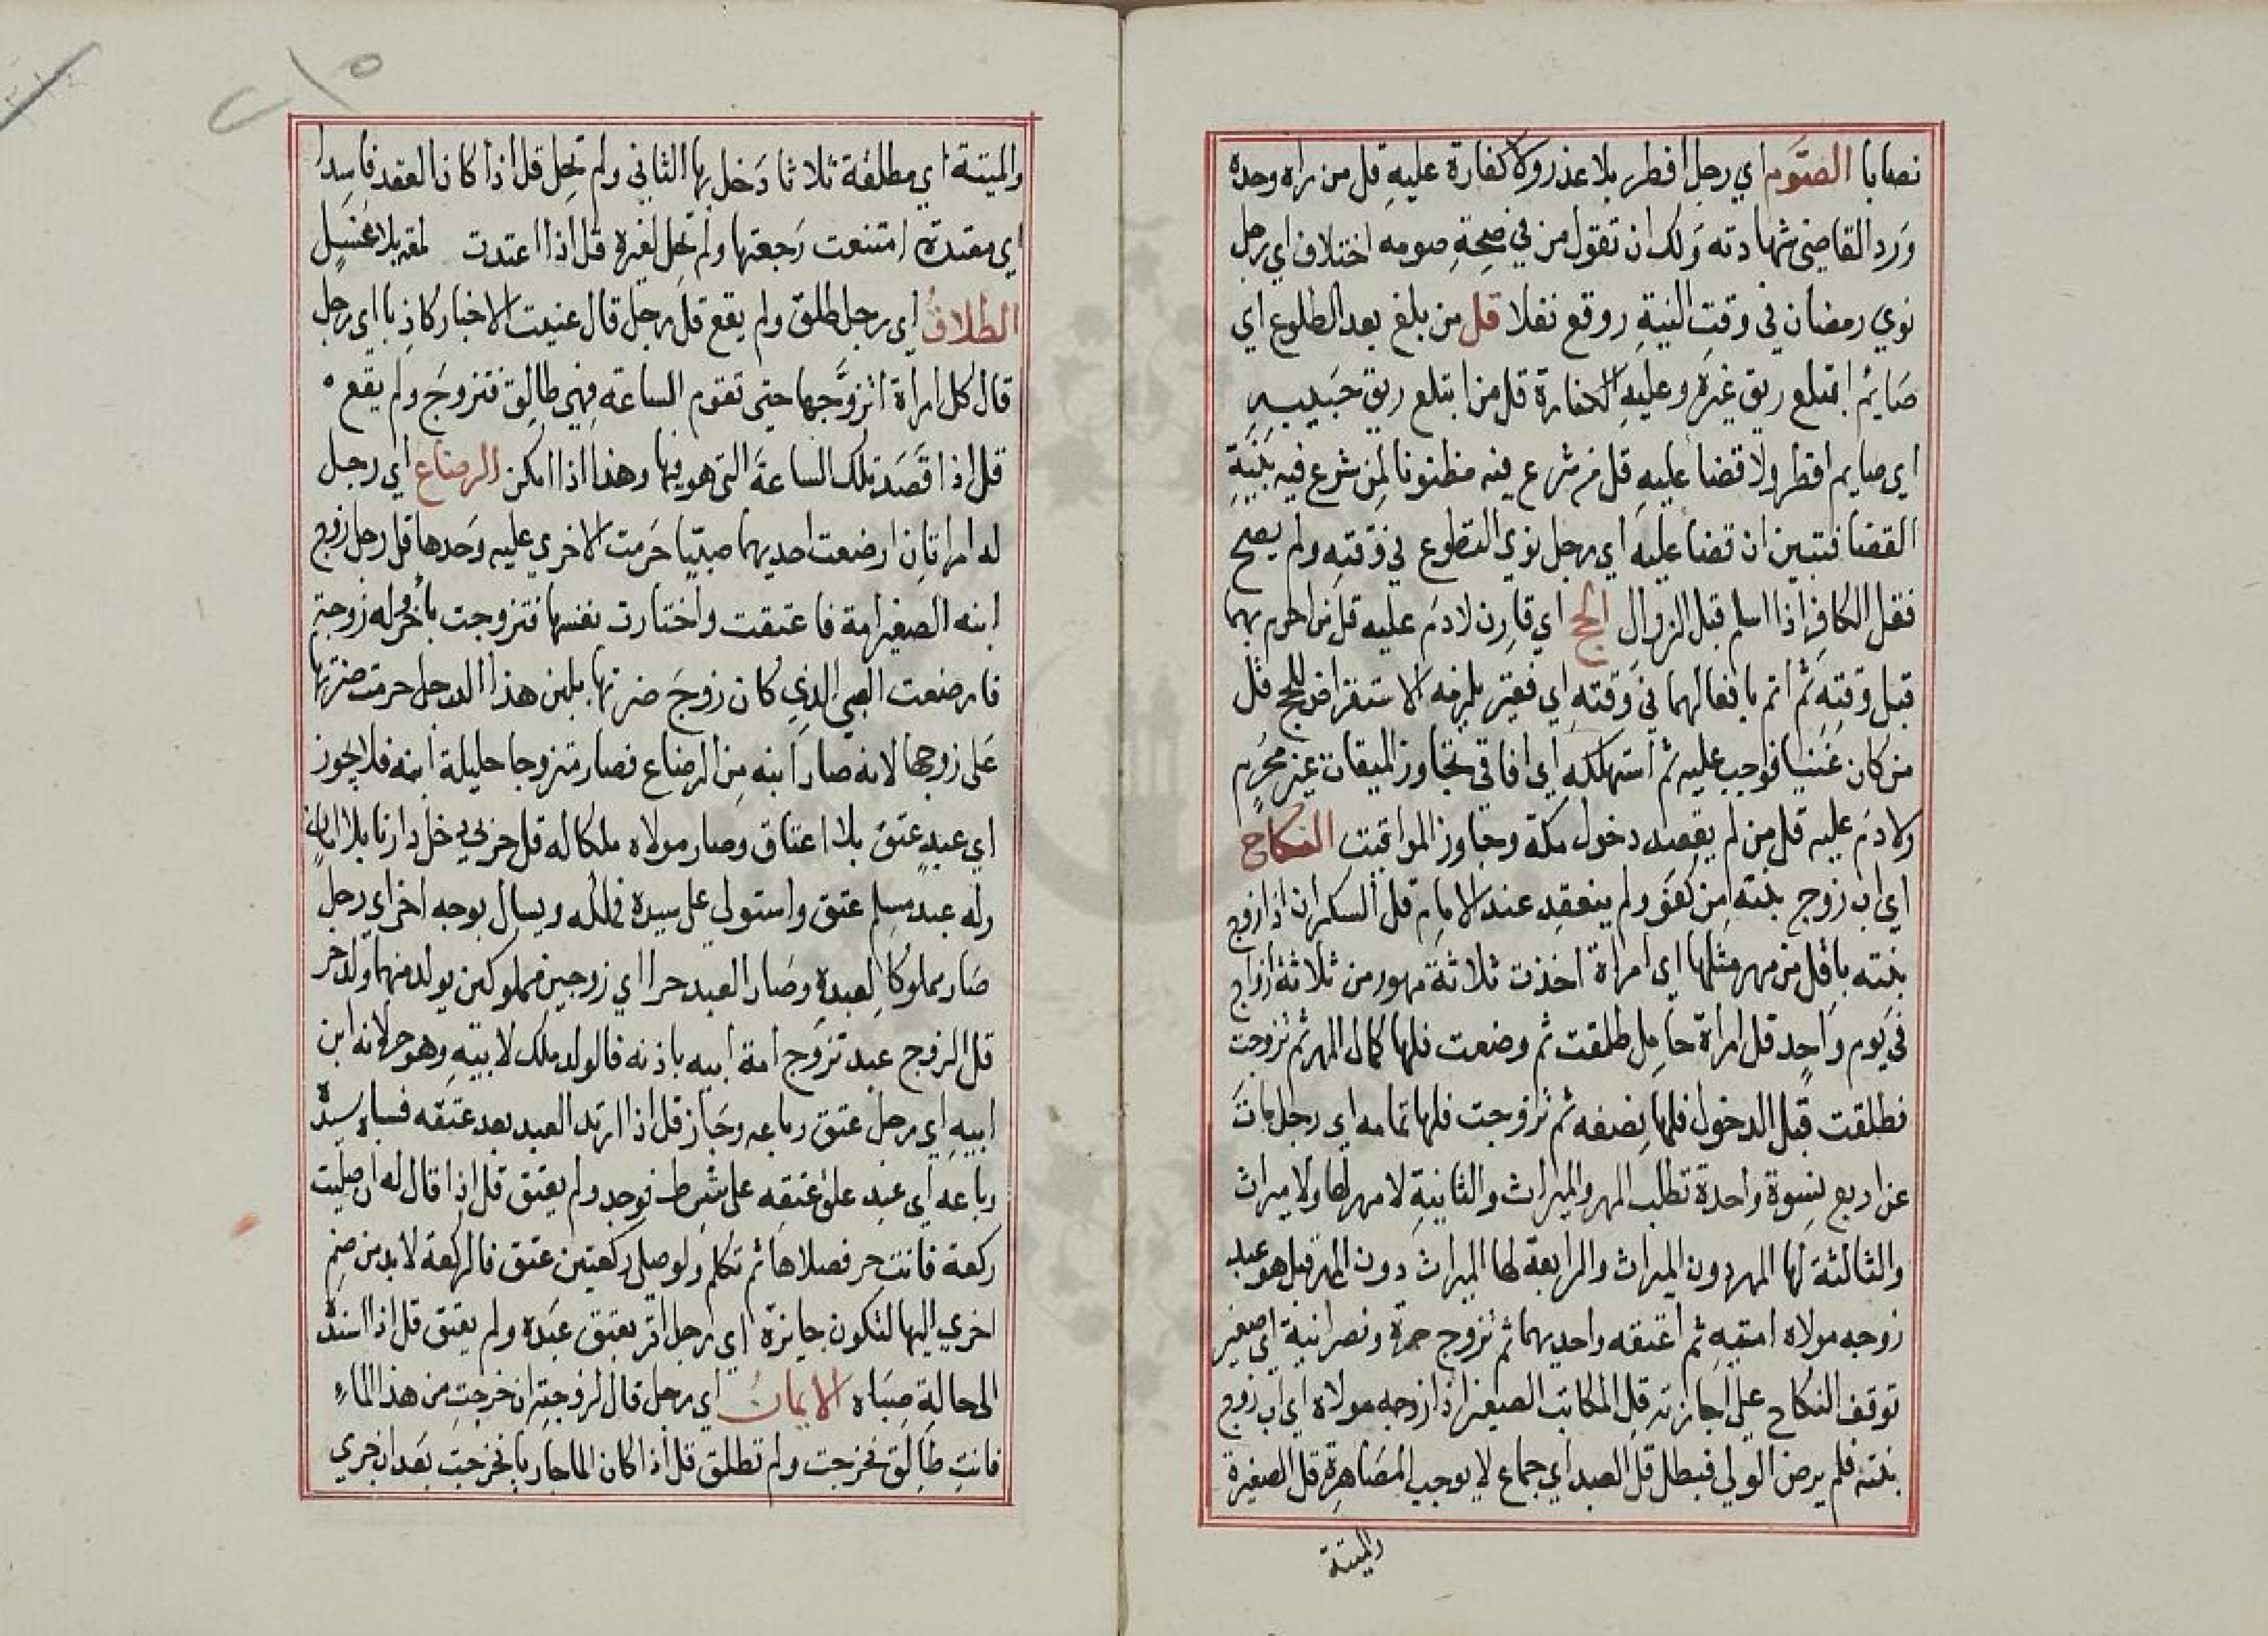 نصابا الصوم اي رجل افطر بلا عذر ولا كفارة عليه قل من راه وحده
ورد القاضي شهادته ولك ان تقول من في صحة صومه اختلاف اي رجل
نوي رمضان في وقت النية ووقع نفلا قل من بلغ بعد الطلوع اي
صايم ابتلع ريق غيره وعليه الكفارة قل من ابتلع ريق حبيبه
اي صايم افطر ولا قضا عليه قل من شرع فيه مظنونا لمن شرع فيه بنية
القضا فتبين ان لا قضا عليه اي رجل نوي التطوع في وقته ولم يصح
فقل الكافر اذا اسلم قبل الزوال الحج اي قارن لا دم عليه قل من احرم بهما
قبل وقته ثم اتم بافعالهما في وقته اي فقير يلزمه الاستقراض للحج قل
من كان غنيا فوجب عليه ثم استهلكه اي افاقي تجاوز الميقات غير محرم
ولا دم عليه قل من لم يقصد دخول مكة وجاوز المواقيت النكاح
اي اب زوج بنته من كفو ولم ينعقد عند الامام قل السكران اذا زوج
بنته باقل من مهر مثلها اي امراة اخذت ثلاثة مهور من ثلاثة ازواج
في يوم واحد قل امراة حامل طلقت ثم وضعت فلها كمال المهر ثم تزوجت
فطلقت قبل الدخول فلها نصفه ثم تزوجت فلها تمامه اي رجل مات
عن اربع نسوة واحدة تطلب المهر والميراث والثانية لا مهر لها ولا ميراث
والثالثة لها المهر دون الميراث والرابعة لها الميراث دون المهر قيل هو عبد
زوجه مولاه امتيه ثم اعتقه واحديهما ثم تزوج حرة ونصرانية اي صغير
توقف النكاح علي اجازته قل المكاتب الصغير اذا زوجه مولاه اي اب زوج
بنته فلم يرض الولي فبطل قل العبد اي جماع لا يوجب المصاهرة قل الصغيرة
والميتة
والميتة اي مطلقة ثلاثا دخل بها الثاني ولم تحل قل اذا كان العقد فاسدا
اي معتدة امتنعت رجعتها ولم تحل لغيره قل اذا اعتدت بلا غسل
الطلاق اي رجل طلق ولم يقع قل رجل قال عنيت الاخبار كاذبا اي رجل
قال كل امراة اتزوجها حتي تقوم الساعة فهي طالق فتزوج ولم يقع
قل اذا قصد تلك الساعة التي هو فيها وهذا اذا امكن الرضاع اي رجل
له امراتان ارضعت احديهما صبيا حرمت الاخري عليه وحدها قل رجل زوج
ابنه الصغير امة فاعتقت واختارت نفسها فتزوجت باخر وله زوجة
فارضعت الصبي الذي كان زوج ضرتها بلبن هذا الرجل حرمت ضرتها
علي زوجها لانه صار ابنه من الرضاع فصار متزوجا حليلة ابنه فلا يجوز
اي عبد عتق بلا اعتاق وصار مولاه ملكا له قل حربي دخل دارنا بلا امان
وله عبد مسلم عتق واستولي علي سيده فملكه ويسال بوجه اخر اي رجل
صار مملوكا لعبده وصار العبد حرا اي زوجين مملوكين يولد منهما ولد حر
قل الزوج عبد تزوج امة ابيه باذنه فالولد ملك لابيه وهو حر لانه ابن
ابيه اي رجل عتق وباعه وجاز قل اذا ارتد العبد بعد عتقه فسباه سيده
وباعه اي عبد علق عتقه علي شرط فوجد ولم يعتق قل اذا قال له ان صليت
ركعة فانت حر فصلاها ثم تكلم ولو صلي ركعتين عتق فالركعة لا بد من ضم
اخري اليها لتكون جايزة اي رجل اقر بعتق عبده ولم يعتق قل اذا اسنده
الي حالة صباه الايمان اي رجل قال لزوجته ان خرجت من هذا الماء
فانت طالق فخرجت ولم تطلق قل اذا كان الماء جاريا فخرجت بعد ان جري